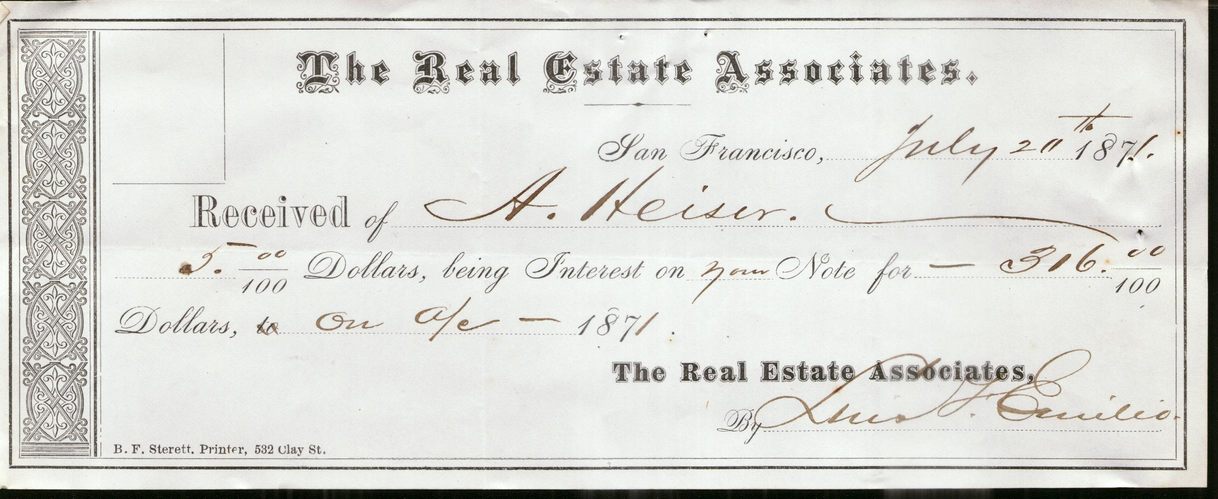 The Real Estate Associates.
San Francisco, July 20th 1871.
Received of A. Heiser.
5. 00/100 Dollars, being Interest on your Note for — 316. 00/100
Dollars, to On a/c — 1871.
The Real Estate Associates,
By Luis F. Emilio.
B. F. Sterett, Printer, 532 Clay St.